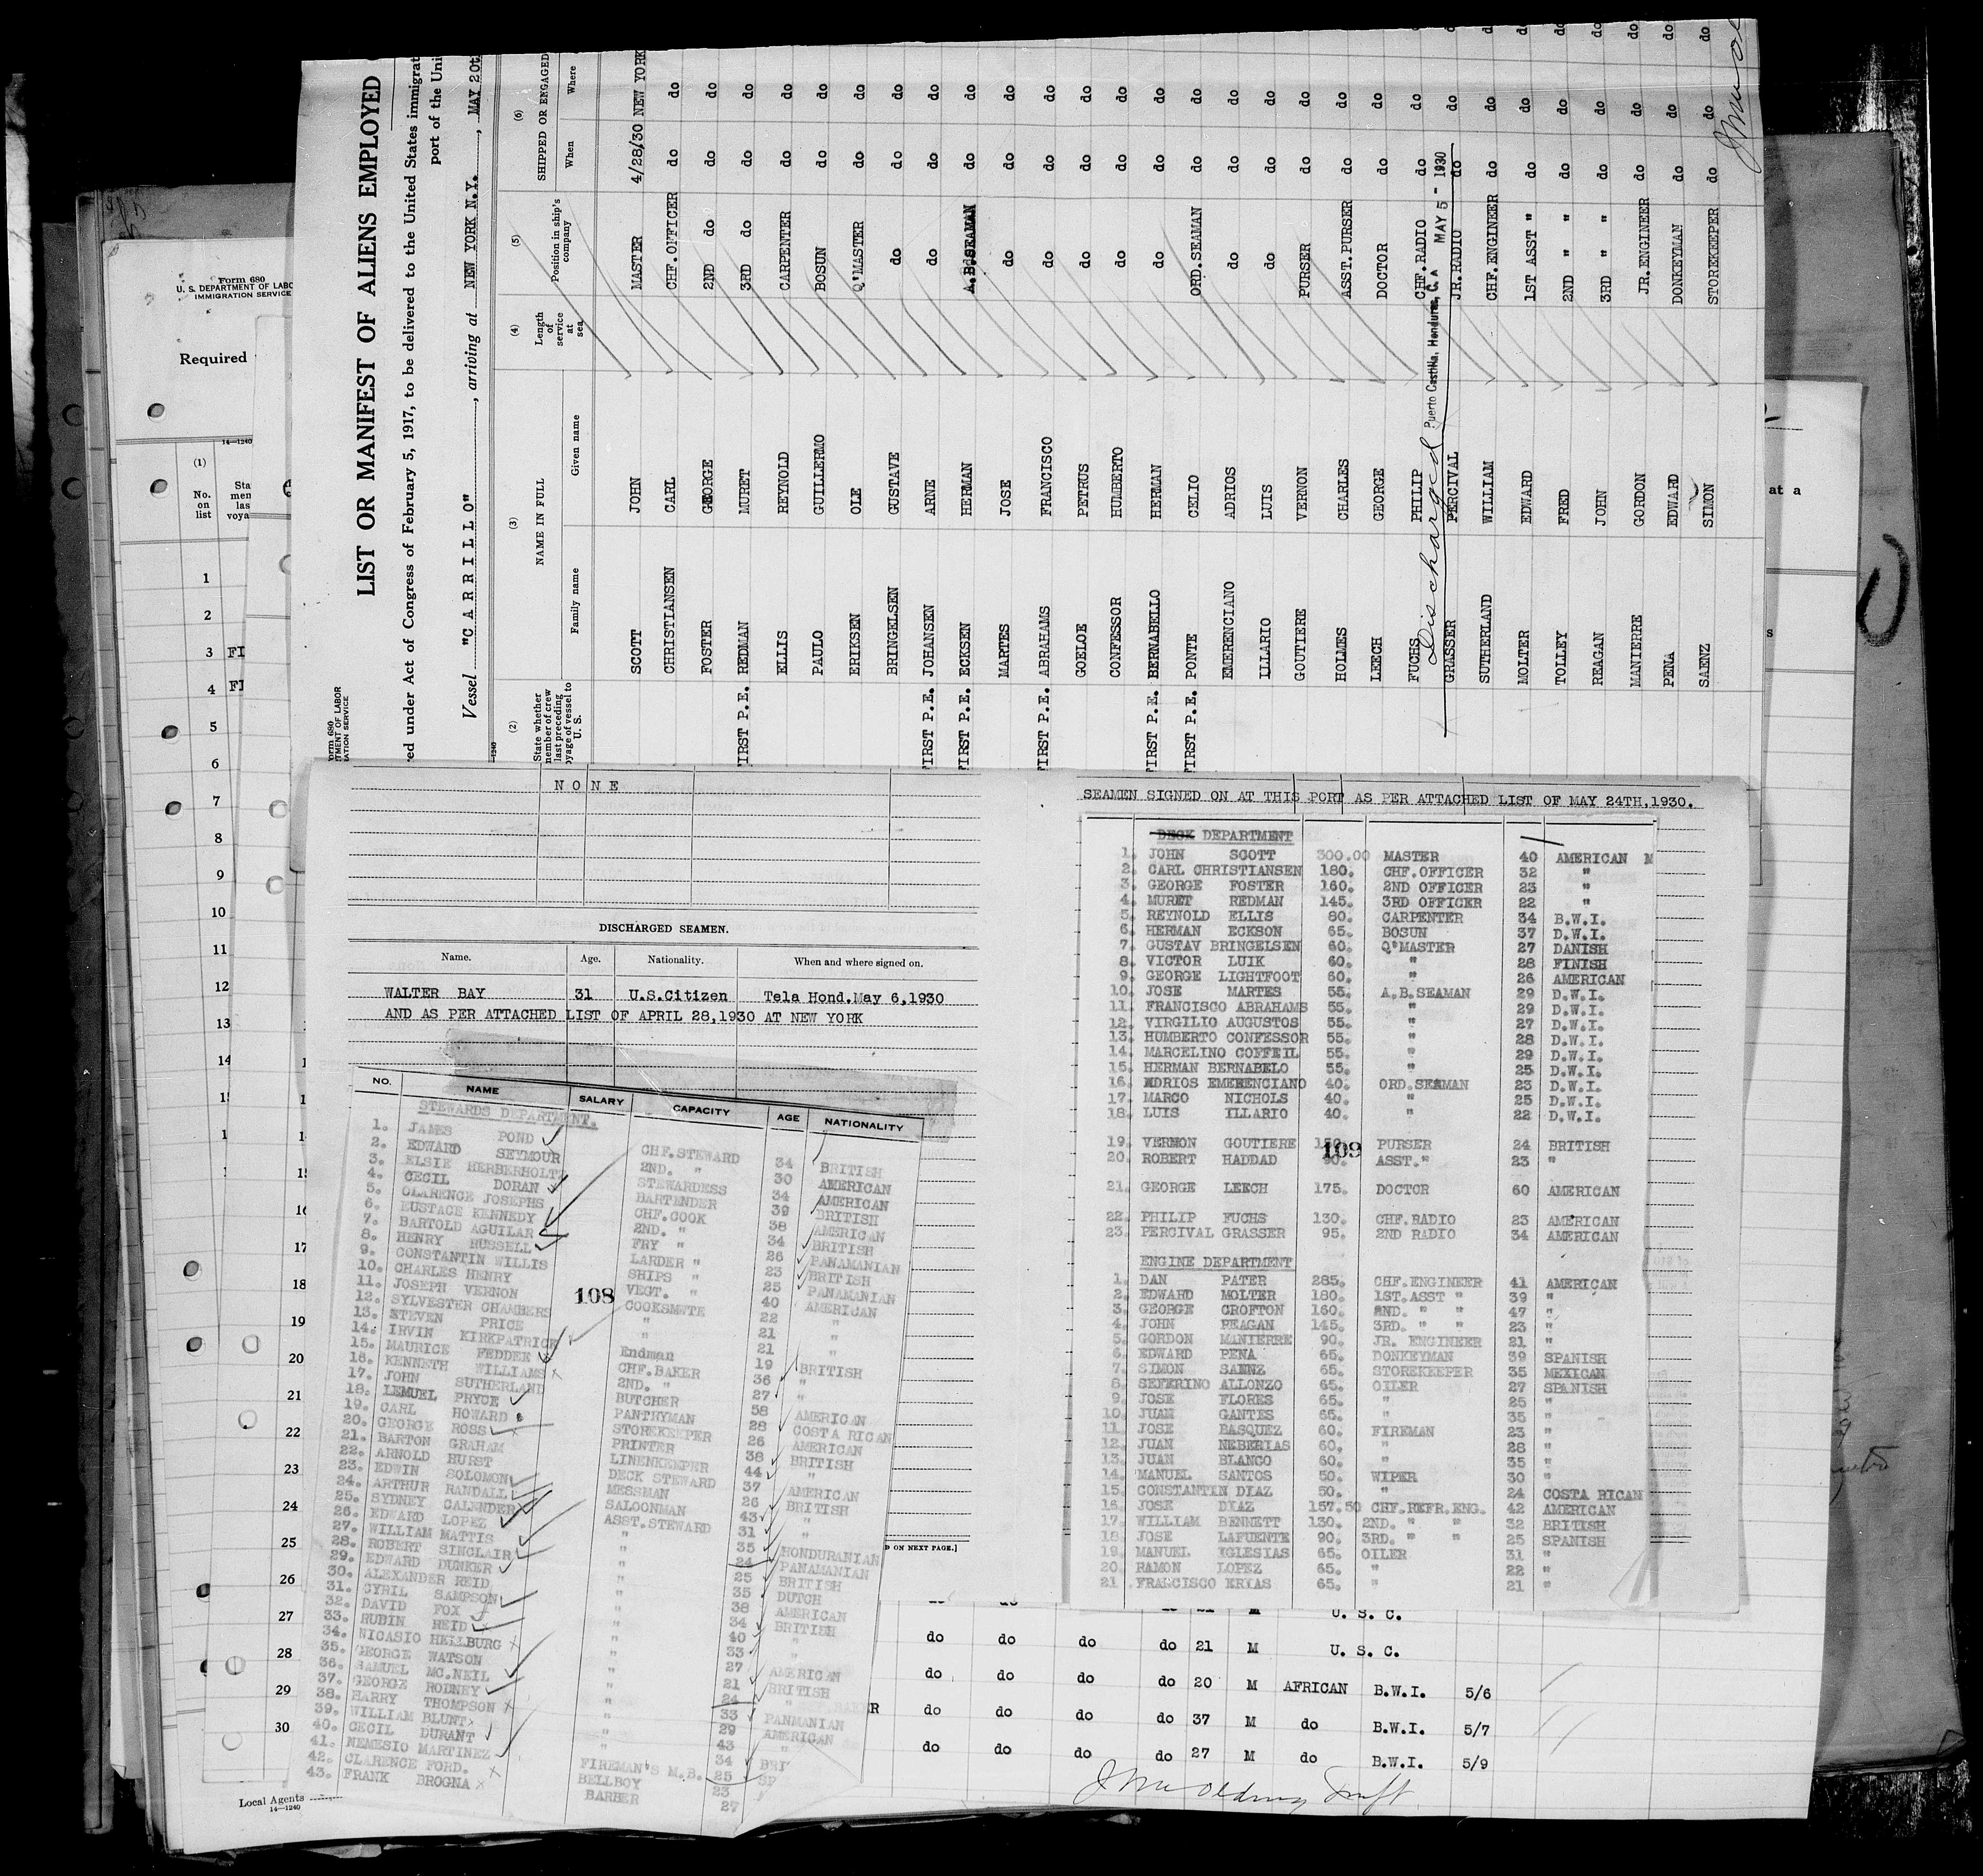 Form 680
U. S. DEPARTMENT OF LABO
IMMIGRATION SERVICE
Required
14—1240
(1)
No. on list
Sta
men
las
voya
1
2
3 FI
4 FI
5
6
7
8
9
10
11
12
13
14
15
16
17
18
19
20
21
22
23
24
25
26
27
28
29
30
Local Agents
14—1240
at a
LIST OR MANIFEST OF ALIENS EMPLOYED
ed under Act of Congress of February 5, 1917, to be delivered to the United States immigrat
port of the Uni
Vessel "C A R R I L L O", arriving at NEW YORK N.Y., MAY 20t
orm 680
TMENT OF LABOR
ATION SERVICE
(2) (3) (4) (5) (6)
State whether member of crew last preceding voyage of vessel to U. S.
NAME IN FULL
Family name Given name
Length of service at sea
Position in ship's company
SHIPPED OR ENGAGED
When Where
SCOTT JOHN MASTER 4/28/30 NEW YORK
CHRISTIANSEN CARL CHF.OFFICER do do
FOSTER GEORGE 2ND do do do
FIRST P.E. REDMAN MURET 3RD do do do
ELLIS REYNOLD CARPENTER do do
PAULO GUILLERMO BOSUN do do
ERIKSEN OLE Q'MASTER do do
BRINGELSEN GUSTAVE do do do
FIRST P.E. JOHANSEN ARNE do do do
FIRST P.E. ECKSEN HERMAN A.B.SEAMAN do do
MARTES JOSE do do do
FIRST P.E. ABRAHAMS FRANCISCO do do do
GOELOE PETRUS do do do
CONFESSOR HUMBERTO do do do
FIRST P.E. BERNABELLO HERMAN do do do
FIRST P.E. PONTE CELIO ORD.SEAMAN do do
EMERENCIANO ADRIOS do do do
ILLARIO LUIS do do do
GOUTIERE VERNON PURSER do do
HOLMES CHARLES ASST.PURSER do do
LEECH GEORGE DOCTOR do do
FUCHS PHILIP CHF.RADIO do do
Discharged Puerto Castilla, Honduras, C. A MAY 5 - 1930
GRASSER PERCIVAL JR.RADIO do do
SUTHERLAND WILLIAM CHF.ENGINEER do do
MOLTER EDWARD 1ST ASST " do do
TOLLEY FRED 2ND " " do do
REAGAN JOHN 3RD " " do do
MANIERRE GORDON JR.ENGINEER do do
PENA EDWARD DONKEYMAN do do
SAENZ SIMON STOREKEEPER do do
N O N E
DISCHARGED SEAMEN.
Name. Age. Nationality. When and where signed on.
WALTER BAY 31 U.S.Citizen Tela Hond.May 6,1930
AND AS PER ATTACHED LIST OF APRIL 28,1930 AT NEW YORK
D ON NEXT PAGE.]
NO. NAME SALARY CAPACITY AGE NATIONALITY
STEWARDS DEPARTMENT.
1. JAMES POND CHF.STEWARD 34 BRITISH
2. EDWARD SEYMOUR 2ND. " 30 AMERICAN
3. ELSIE HERBERHOLTZ STEWARDESS 34 AMERICAN
4. CECIL DORAN BARTENDER 39 BRITISH
5. CLARENCE JOSEPHS CHF.COOK 38 AMERICAN
6. EUSTACE KENNEDY 2ND. " 34 BRITISH
7. BARTOLD AGUILAR FRY " 26 PANAMANIAN
8. HENRY RUSSELL LARDER " 23 BRITISH
9. CONSTANTIN WILLIS SHIPS " 25 PANAMANIAN
10. CHARLES HENRY VEGT. " 40 AMERICAN
11. JOSEPH VERNON COOKSMATE 22 "
12. SYLVESTER CHAMBERS " 21 "
13. STEVEN PRICE " 21 "
14. IRVIN KIRKPATRICK Endman 19 BRITISH
15. MAURICE FEDDEK CHF.BAKER 36 "
16. KENNETH WILLIAMS 2ND. " 27 "
17. JOHN SUTHERLAND BUTCHER 58 AMERICAN
18. LEMUEL PRYCE PANTRYMAN 28 COSTA RICAN
19. CARL HOWARD STOREKEEPER 26 AMERICAN
20. GEORGE ROSS PRINTER 38 BRITISH
21. BARTON GRAHAM LINENKEEPER 44 "
22. ARNOLD HURST DECK STEWARD 37 AMERICAN
23. EDWIN SOLOMON MESSMAN 26 BRITISH
24. ARTHUR RANDALL SALOONMAN 43 "
25. SYDNEY CALENDER ASST.STEWARD 31 "
26. EDWARD LOPEZ " 35 HONDURANIAN
27. WILLIAM MATTIS " 24 PANAMANIAN
28. ROBERT SINCLAIR " 25 BRITISH
29. EDWARD DUNKER " 35 DUTCH
30. ALEXANDER REID " 38 AMERICAN
31. CYRIL SAMPSON " 34 BRITISH
32. DAVID FOX " 40 "
33. RUBIN REID " 33 "
34. NICASIO HELLBURG " 27
35. GEORGE WATSON " 21 AMERICAN
36. SAMUEL MC.NEIL " 24 BRITISH
37. GEORGE RODNEY " 33 "
38. HARRY THOMPSON " 29 PANMANIAN
39. WILLIAM BLUNT " 43 AMERICAN
40. CECIL DURANT " 34 "
41. NEMESIO MARTINEZ FIREMAN'S M.B. 25
42. CLARENCE FORD. BELLBOY 23
43. FRANK BROGNA BARBER 27
108
SEAMEN SIGNED ON AT THIS PORT AS PER ATTACHED LIST OF MAY 24TH,1930.
DECK DEPARTMENT
1. JOHN SCOTT 300.00 MASTER 40 AMERICAN M
2. CARL CHRISTIANSEN 180. CHF.OFFICER 32 "
3. GEORGE FOSTER 160. 2ND OFFICER 23 "
4. MURET REDMAN 145. 3RD OFFICER 22 "
5. REYNOLD ELLIS 80. CARPENTER 34 B.W.I.
6. HERMAN ECKSON 65. BOSUN 37 D.W.I.
7. GUSTAV BRINGELSEN 60. Q'MASTER 27 DANISH
8. VICTOR LUIK 60. " 28 FINISH
9. GEORGE LIGHTFOOT 60. " 26 AMERICAN
10. JOSE MARTES 55. A.B.SEAMAN 29 D.W.I.
11. FRANCISCO ABRAHAMS 55. " 29 D.W.I.
12. VIRGILIO AUGUSTOS 55. " 27 D.W.I.
13. HUMBERTO CONFESSOR 55. " 28 D.W.I.
14. MARCELINO COFFEIL 55. " 29 D.W.I.
15. HERMAN BERNABELO 55. " 25 D.W.I.
16. ADRIOS EMERENCIANO 40. ORD.SEAMAN 23 D.W.I.
17. MARCO NICHOLS 40. " 25 D.W.I.
18. LUIS ILLARIO 40. " 22 D.W.I.
19. VERNON GOUTIERE 150. PURSER 24 BRITISH
109
20. ROBERT HADDAD 90. ASST." 23 "
21. GEORGE LEECH 175. DOCTOR 60 AMERICAN
22. PHILIP FUCHS 130. CHF.RADIO 23 AMERICAN
23. PERCIVAL GRASSER 95. 2ND RADIO 34 AMERICAN
ENGINE DEPARTMENT
1. DAN PATER 285. CHF.ENGINEER 41 AMERICAN
2. EDWARD MOLTER 180. 1ST.ASST " 39 "
3. GEORGE CROFTON 160. 2ND. " " 47 "
4. JOHN REAGAN 145. 3RD. " " 23 "
5. GORDON MANIERRE 90. JR. ENGINEER 21 "
6. EDWARD PENA 65. DONKEYMAN 39 SPANISH
7. SIMON SAENZ 65. STOREKEEPER 35 MEXICAN
8. SEFERINO ALLONZO 65. OILER 27 SPANISH
9. JOSE FLORES 65. " 25 "
10. JUAN GANTES 65. " 35 "
11. JOSE BASQUEZ 60. FIREMAN 23 "
12. JUAN NEBERIAS 60. " 28 "
13. JUAN BLANCO 60. " 35 "
14. MANUEL SANTOS 50. WIPER 30 "
15. CONSTANTIN DIAZ 50. " 24 COSTA RICAN
16. JOSE DIAZ 157.50 CHF.REFR.ENG. 42 AMERICAN
17. WILLIAM BENNETT 130. 2ND. " " 32 BRITISH
18. JOSE LAFUENTE 90. 3RD. " " 25 SPANISH
19. MANUEL YGLESIAS 65. OILER 31 "
20. RAMON LOPEZ 65. " 22 "
21. FRANCISCO ERIAS 65. " 21 "
U. S. C.
do do do do 21 M U. S. C.
do do do do 20 M AFRICAN B.W.I. 5/6
do do do do 37 M do B.W.I. 5/7
do do do do 27 M do B.W.I. 5/9